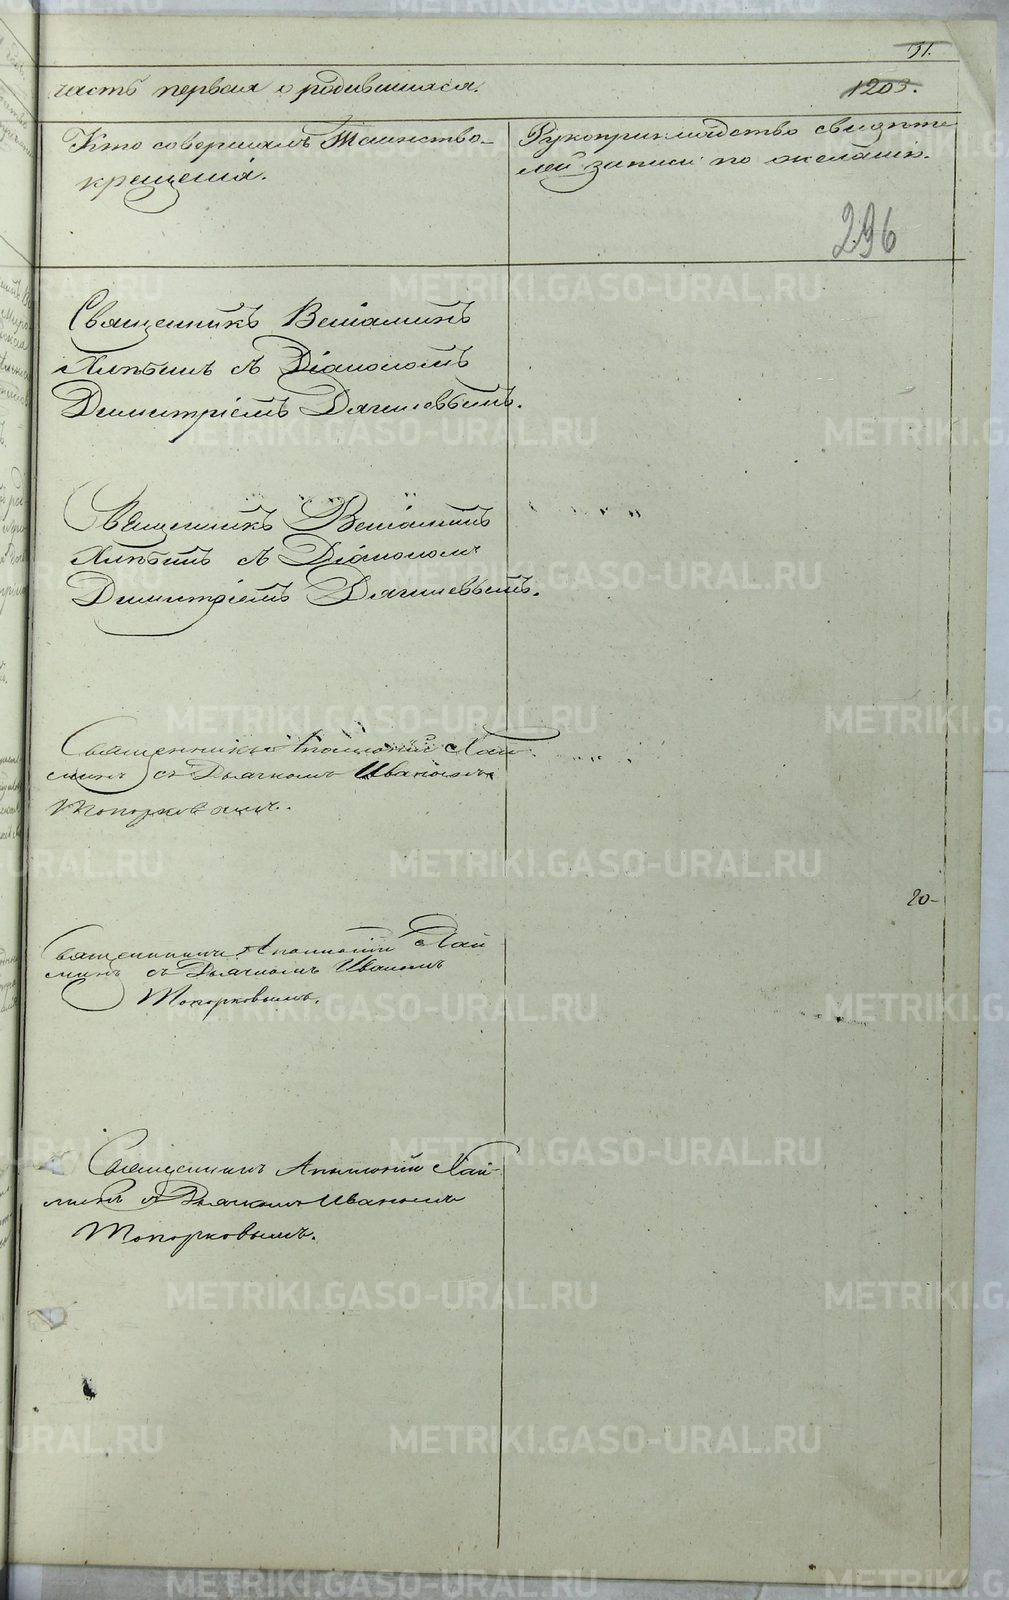 31.
часть первая о родившихся.
1203.
Кто совершалъ Таинство
крещенія.
Рукоприкладство свидѣте
лей записи по желанію.
296
Священникъ Веніаминъ
съ Діакономъ
Димитріемъ Дягилевымъ.
Священникъ Веніаминъ
съ Діакономъ
Димитріемъ Дягилевымъ.
Священникъ Аполлоній
съ Дьячкомъ Иваномъ
Топорковымъ.
20-
Священникъ Аполлоній
съ Дьячкомъ Иваномъ
Топорковымъ.
Священникъ Аполлоній
съ Дьячкомъ Иваномъ
Топорковымъ.
METRIKI.GASO-URAL.RU